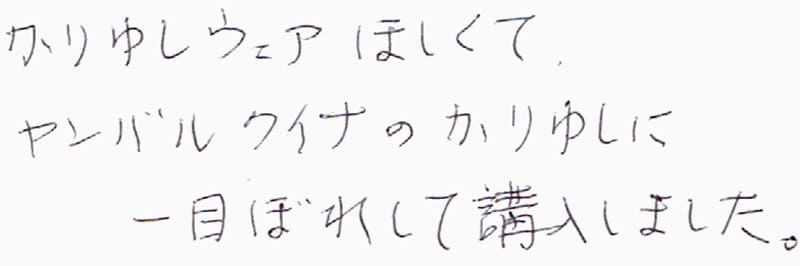 かりゆしウェアほしくて、
ヤンバルクイナのかりゆしに
一目ぼれして講入しました。